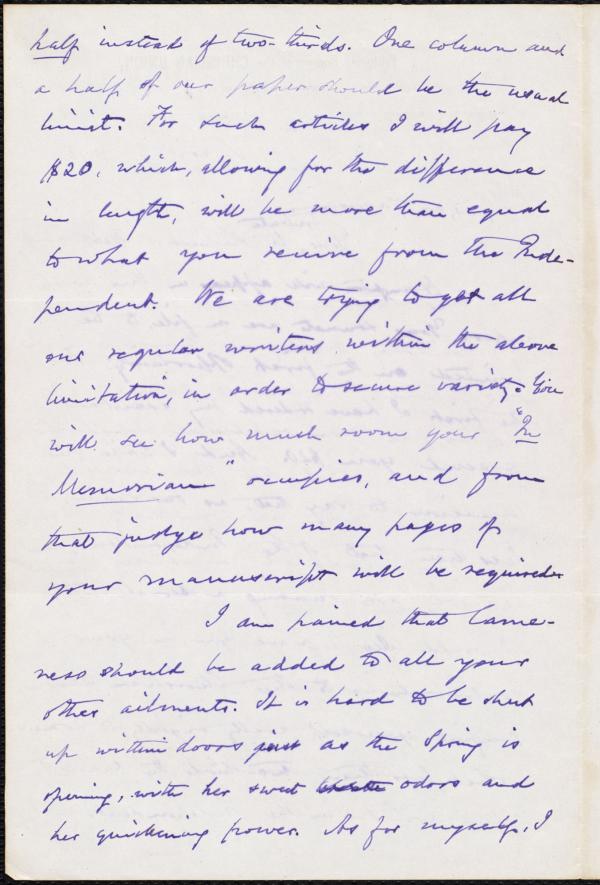 half instead of two-thirds. One column and
a half of our paper should be the usual
limit. For such articles I will pay
$20, which, allowing for the difference
in length, will be more than equal
to what you receive from the Inde-
pendent. We are trying to get all
our regular writers within the above
limitation, in order to secure variety. You
will see how much room your "In
Memoriam" occupies, and from
that judge how many pages of
your manuscript will be required.
I am pained that lame-
ness should be added to all your
other ailments. It is hard to be shut
up within doors just as the Spring is
opening, with her sweet odors and
her quickening power. As for myself, I